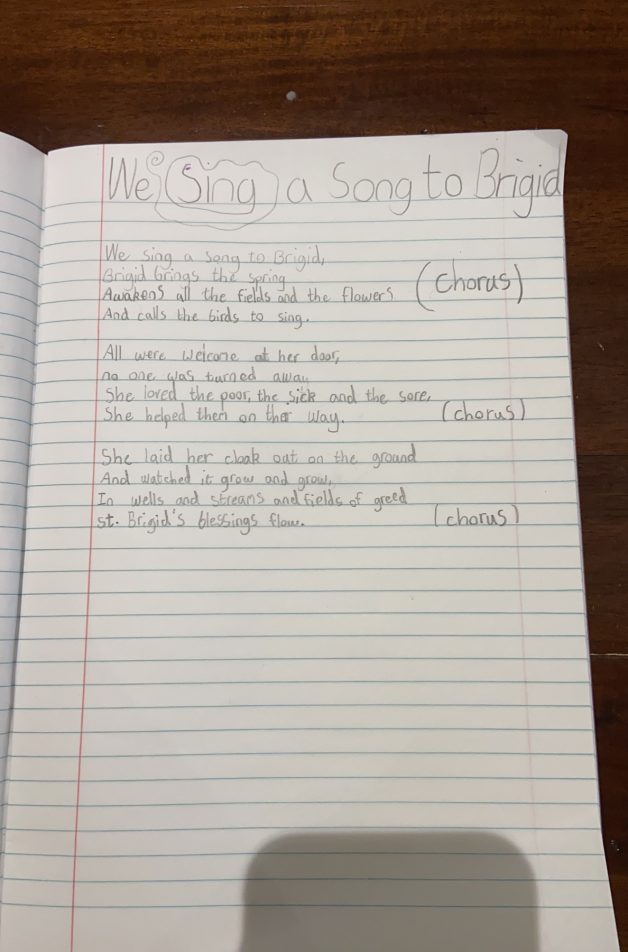 We Sing a Song to Brigid
We sing a song to Brigid,
Brigid brings the spring
Awakens all the fields and the flowers (chorus)
And calls the birds to sing.
All were welcome at her door,
no one was turned away
She loved the poor, the sick and the sore,
She helped them on ther way. (chorus)
She laid her cloak out on the ground
And watched it grow and grow,
In wells and streams and fields of greed
st. Brigid's blessings flow. (chorus)